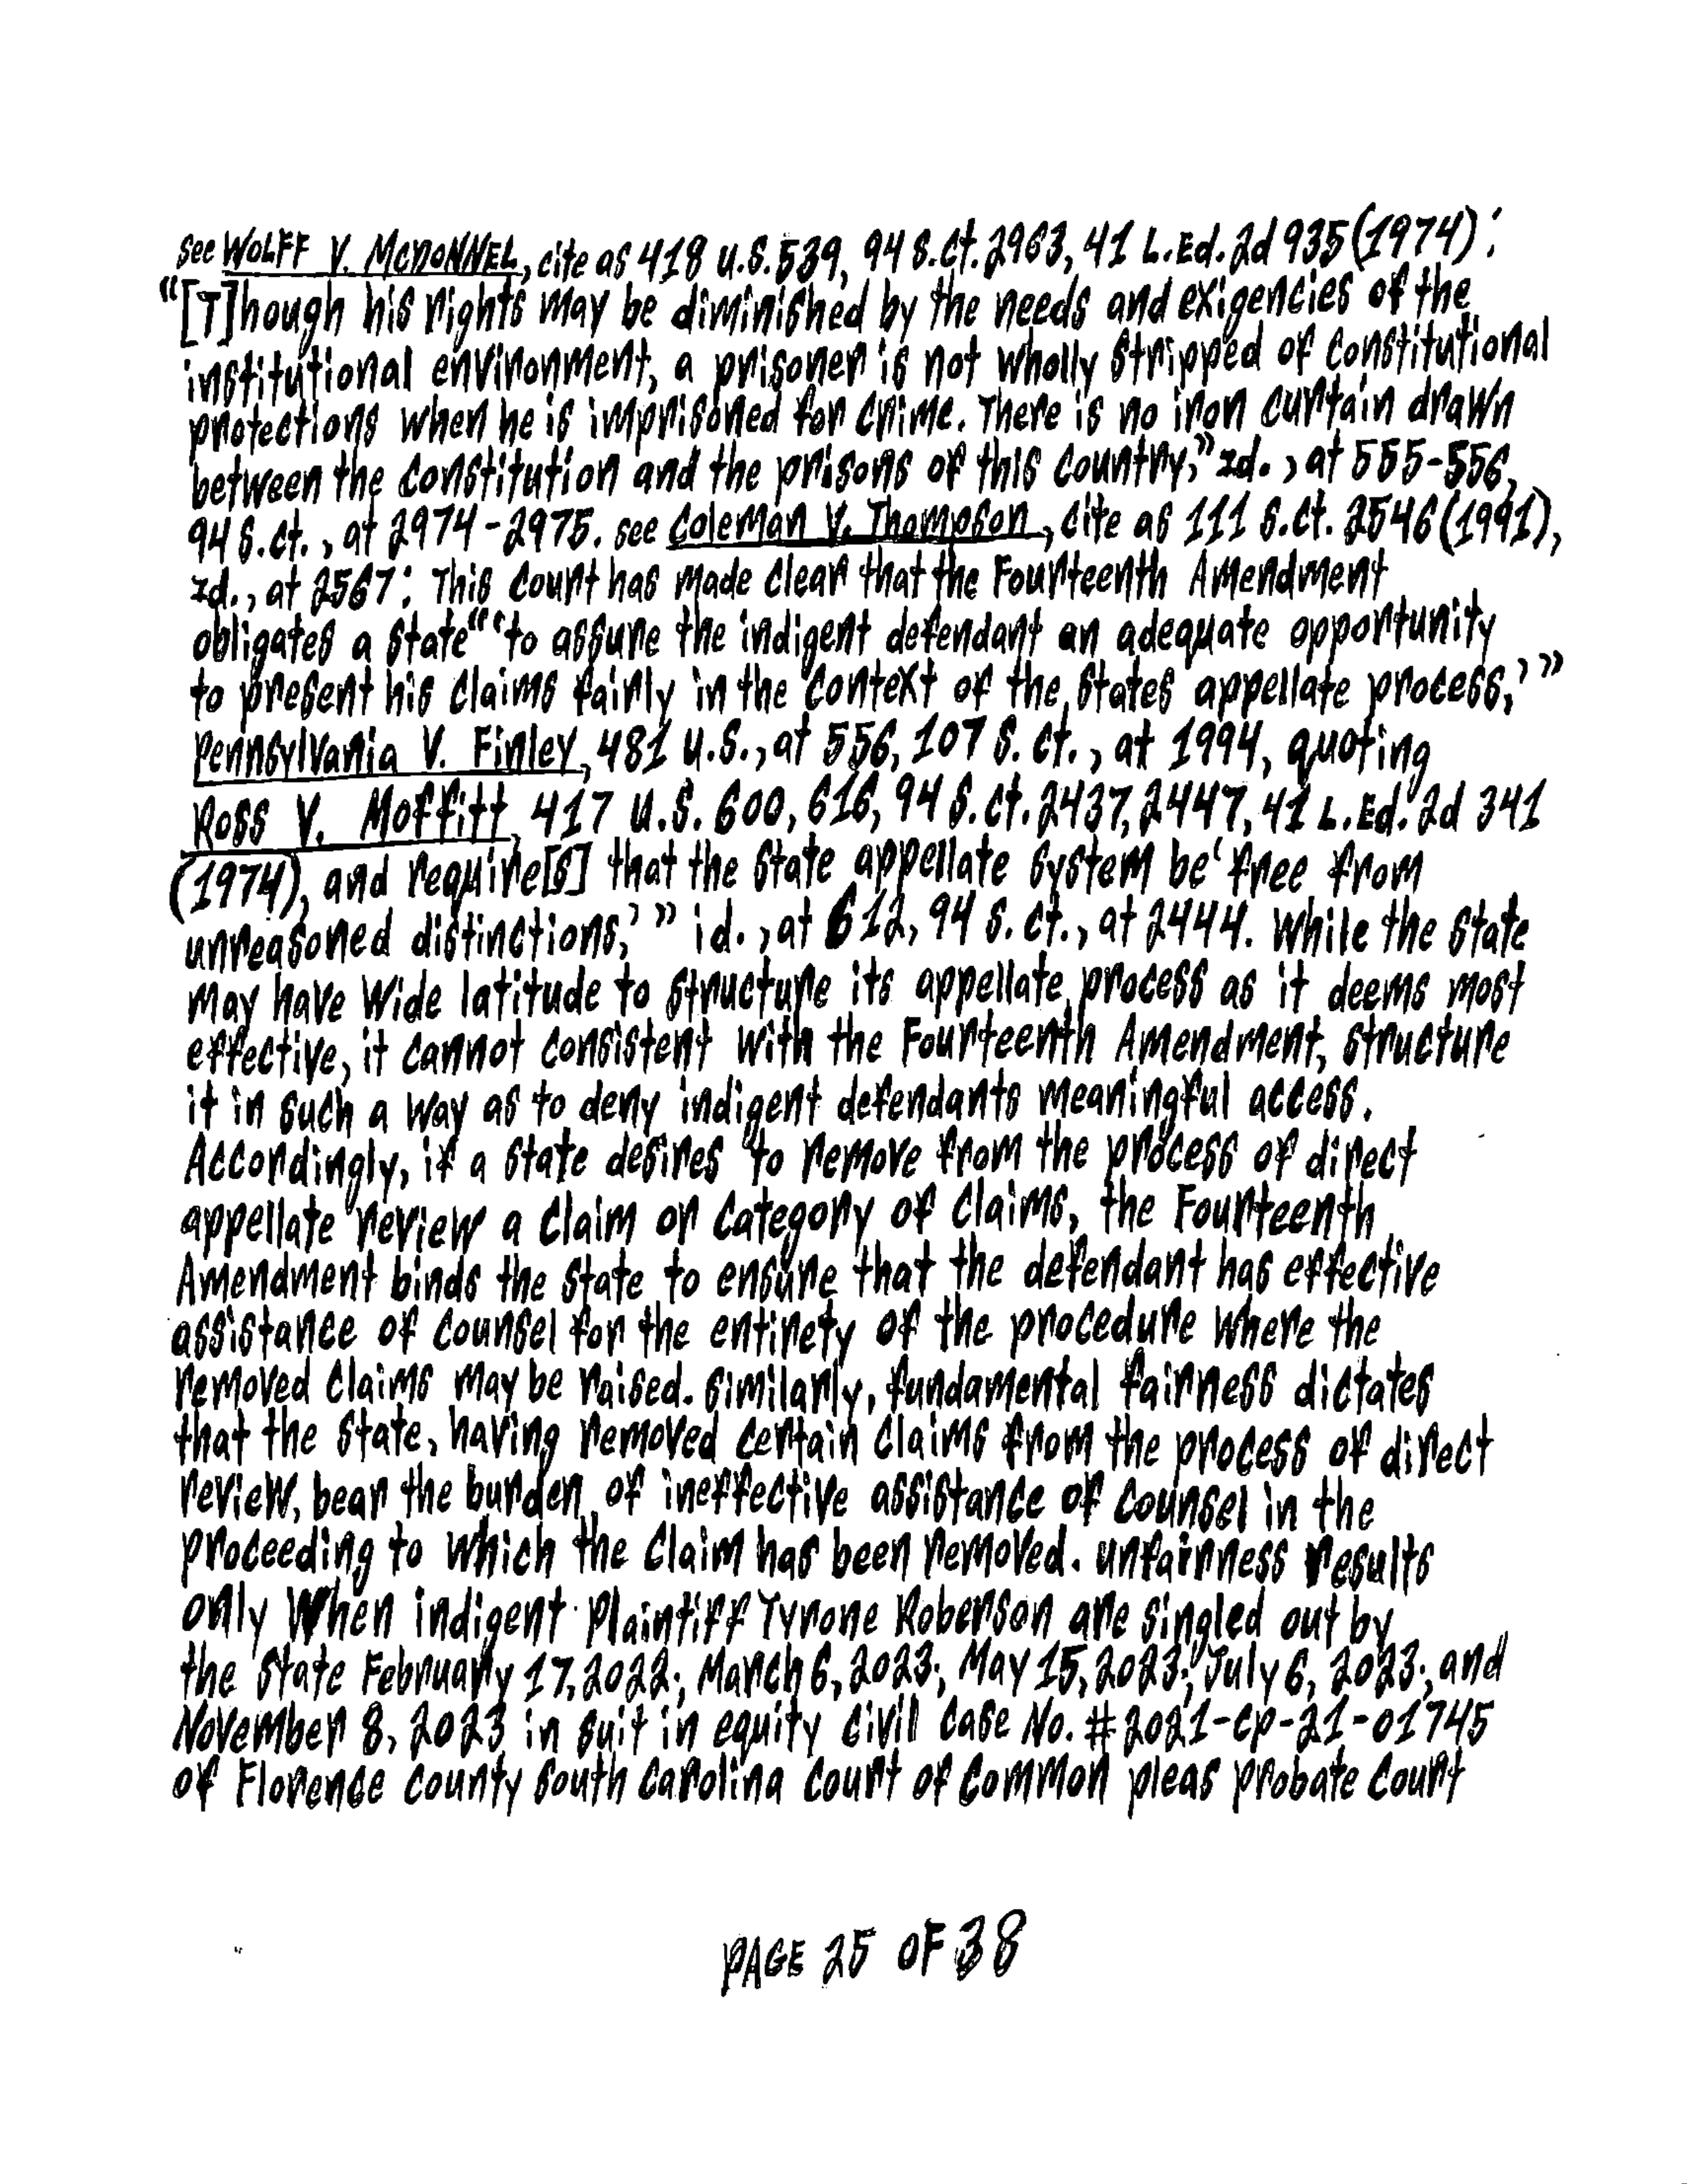 see WOLFF V. MCDONNEL, cite as 418 U.S. 539, 94 S.Ct. 2963, 41 L.Ed. 2d 935 (1974):
"[T]hough his rights may be diminished by the needs and exigencies of the
institutional environment, a prisoner is not wholly stripped of constitutional
protections when he is imprisoned for crime. There is no iron curtain drawn
between the constitution and the prisons of this country," Id., at 555-556,
94 S.Ct., at 2974-2975. see Coleman V. Thompson, cite as 111 S.Ct. 2546 (1991),
Id., at 2567: This court has made clear that the Fourteenth Amendment
obligates a state "'to assure the indigent defendant an adequate opportunity
to present his claims fairly in the context of the states appellate process,'"
Pennsylvania V. Finley, 481 U.S., at 556, 107 S. Ct., at 1994, quoting
Ross V. Moffitt, 417 U.S. 600, 616, 94 S.Ct. 2437, 2447, 41 L.Ed. 2d 341
(1974), and require[s] that the state appellate system be 'free from
unreasoned distinctions,'" id., at 612, 94 S. Ct., at 2444. While the state
may have wide latitude to structure its appellate process as it deems most
effective, it cannot consistent with the Fourteenth Amendment, structure
it in such a way as to deny indigent defendants meaningful access.
Accordingly, if a state desires to remove from the process of direct
appellate review a claim or category of claims, the Fourteenth
Amendment binds the state to ensure that the defendant has effective
assistance of counsel for the entirety of the procedure where the
removed claims may be raised. Similarly, fundamental fairness dictates
that the state, having removed certain claims from the process of direct
review, bear the burden of ineffective assistance of counsel in the
proceeding to which the claim has been removed. unfairness results
only when indigent Plaintiff Tyrone Roberson are singled out by
the state February 17, 2022; March 6, 2023; May 15, 2023; July 6, 2023; and
November 8, 2023 in suit in equity civil case No. # 2021-cp-21-01745
of Florence county south carolina court of common pleas probate court
PAGE 25 OF 38